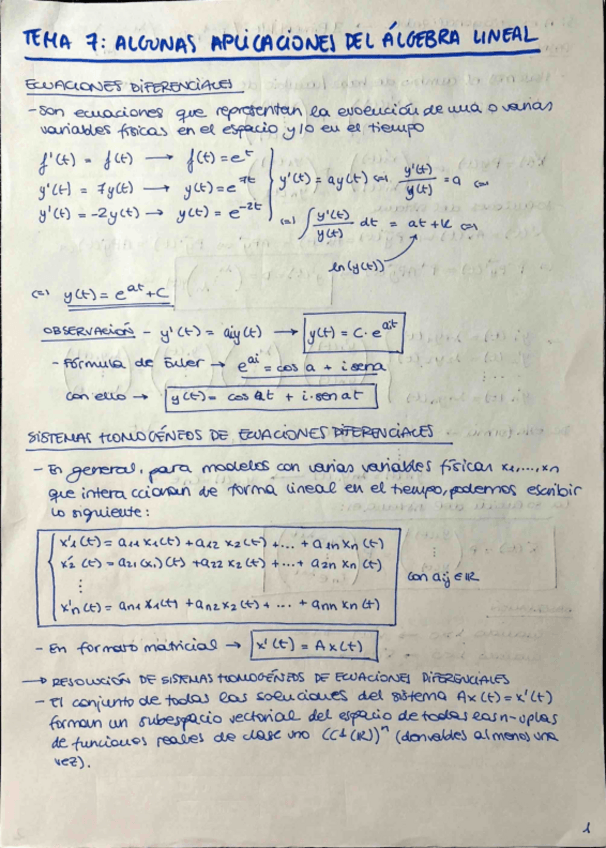 TEMA 7: ALGUNAS APLICACIONES DEL ÁLGEBRA LINEAL
ECUACIONES DIFERENCIALES
- Son ecuaciones que representan la evolución de una o varias
variables físicas en el espacio y/o en el tiempo
f'(t) = f(t) → f(t) = e^t
y'(t) = 7y(t) → y(t) = e^7t
y'(t) = -2y(t) → y(t) = e^-2t
} y'(t) = ay(t) <=> y'(t)/y(t) = a <=>
<=> ∫ y'(t)/y(t) dt = at + K <=>
ln(y(t))
<=> y(t) = e^at + C
OBSERVACIÓN - y'(t) = aiy(t) → y(t) = C · e^ait
- Fórmula de Euler → e^ai = cos a + i sen a
con ello → y(t) = cos at + i · sen at
SISTEMAS HOMOGÉNEOS DE ECUACIONES DIFERENCIALES
- En general, para modelos con varias variables físicas x1,...,xn
que interaccionan de forma lineal en el tiempo, podemos escribir
lo siguiente:
x'1(t) = a11 x1(t) + a12 x2(t) + ... + a1n xn(t)
x'2(t) = a21(x1)(t) + a22 x2(t) + ... + a2n xn(t)
⋮
x'n(t) = an1 x1(t) + an2 x2(t) + ... + ann xn(t)
con aij ∈ ℝ
- En formato matricial → x'(t) = Ax(t)
→ RESOLUCIÓN DE SISTEMAS HOMOGÉNEOS DE ECUACIONES DIFERENCIALES
- El conjunto de todas las soluciones del sistema Ax(t) = x'(t)
forman un subespacio vectorial del espacio de todas las n-uplas
de funciones reales de clase uno (C1(ℝ))^n (derivables al menos una
vez).
1